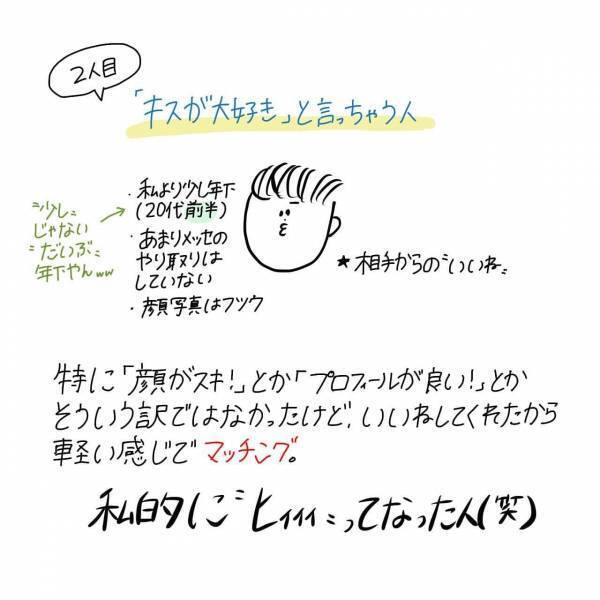 2人目
「キスが大好き」と言っちゃう人
・私より少し年下
(20代前半)
・あまりメッセの
やり取りは
していない
・顔写真はフツウ
"少し"
じゃない
"だいぶ"
年下やんww
★相手からの"いいね"
特に「顔がスキ!」とか「プロフィールが良い!」とか
そういう訳ではなかったけど、いいねしてくれたから
軽い感じでマッチング。
私的に"ヒィィィ"ってなった人(笑)